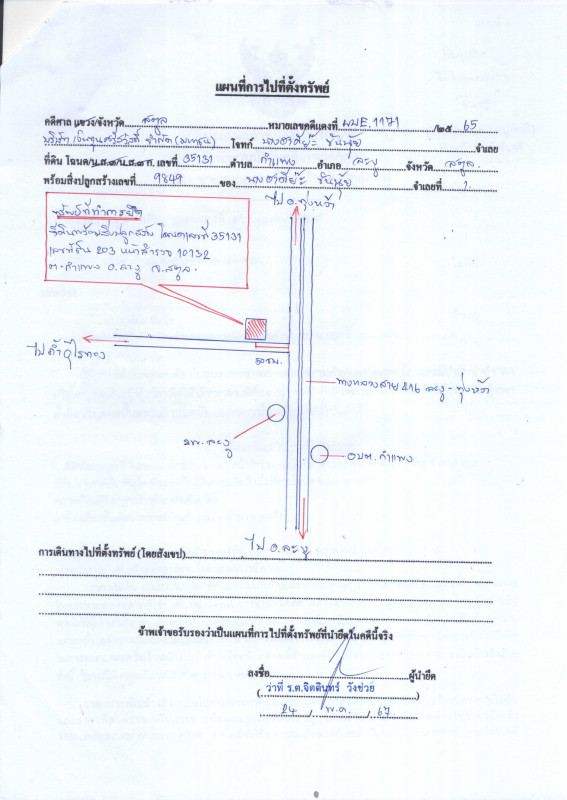 แผนที่การไปที่ตั้งทรัพย์
คดีศาล แขวง/จังหวัด สตูล หมายเลขคดีแดงที่ ผบE.1171 /๒๕ 65
บริษัท เงินทุนศรีสวัสดิ์ จำกัด (มหาชน) โจทก์ นางฮาดีย๊ะ ขันนุ้ย จำเลย
ที่ดิน โฉนด/น.ส.๓/น.ส.๓ ก. เลขที่ 35131 ตำบล กำแพง อำเภอ ละงู จังหวัด สตูล
พร้อมสิ่งปลูกสร้างเลขที่ 9849 ของ นางฮาดีย๊ะ ขันนุ้ย จำเลยที่ 1
ไป อ.ทุ่งหว้า
ทรัพย์ที่ทำการยึด
ที่ดินพร้อมสิ่งปลูกสร้าง โฉนดเลขที่ 35131
เลขที่ดิน 203 หน้าสำรวจ 10132
ต.กำแพง อ.ละงู จ.สตูล.
ไปถ้ำอุไรทอง
50 ม.
ทางหลวงสาย 416 ละงู - ทุ่งหว้า
รพ.ละงู
อบต.กำแพง
ไป อ.ละงู
การเดินทางไปที่ตั้งทรัพย์ (โดยสังเขป)
ข้าพเจ้าขอรับรองว่าเป็นแผนที่การไปที่ตั้งทรัพย์ที่นำยึดในคดีนี้จริง
ลงชื่อ ผู้นำยึด
( ว่าที่ ร.ต.จิตตินทร์ วังช่วย )
24 / พ.ค. / 67